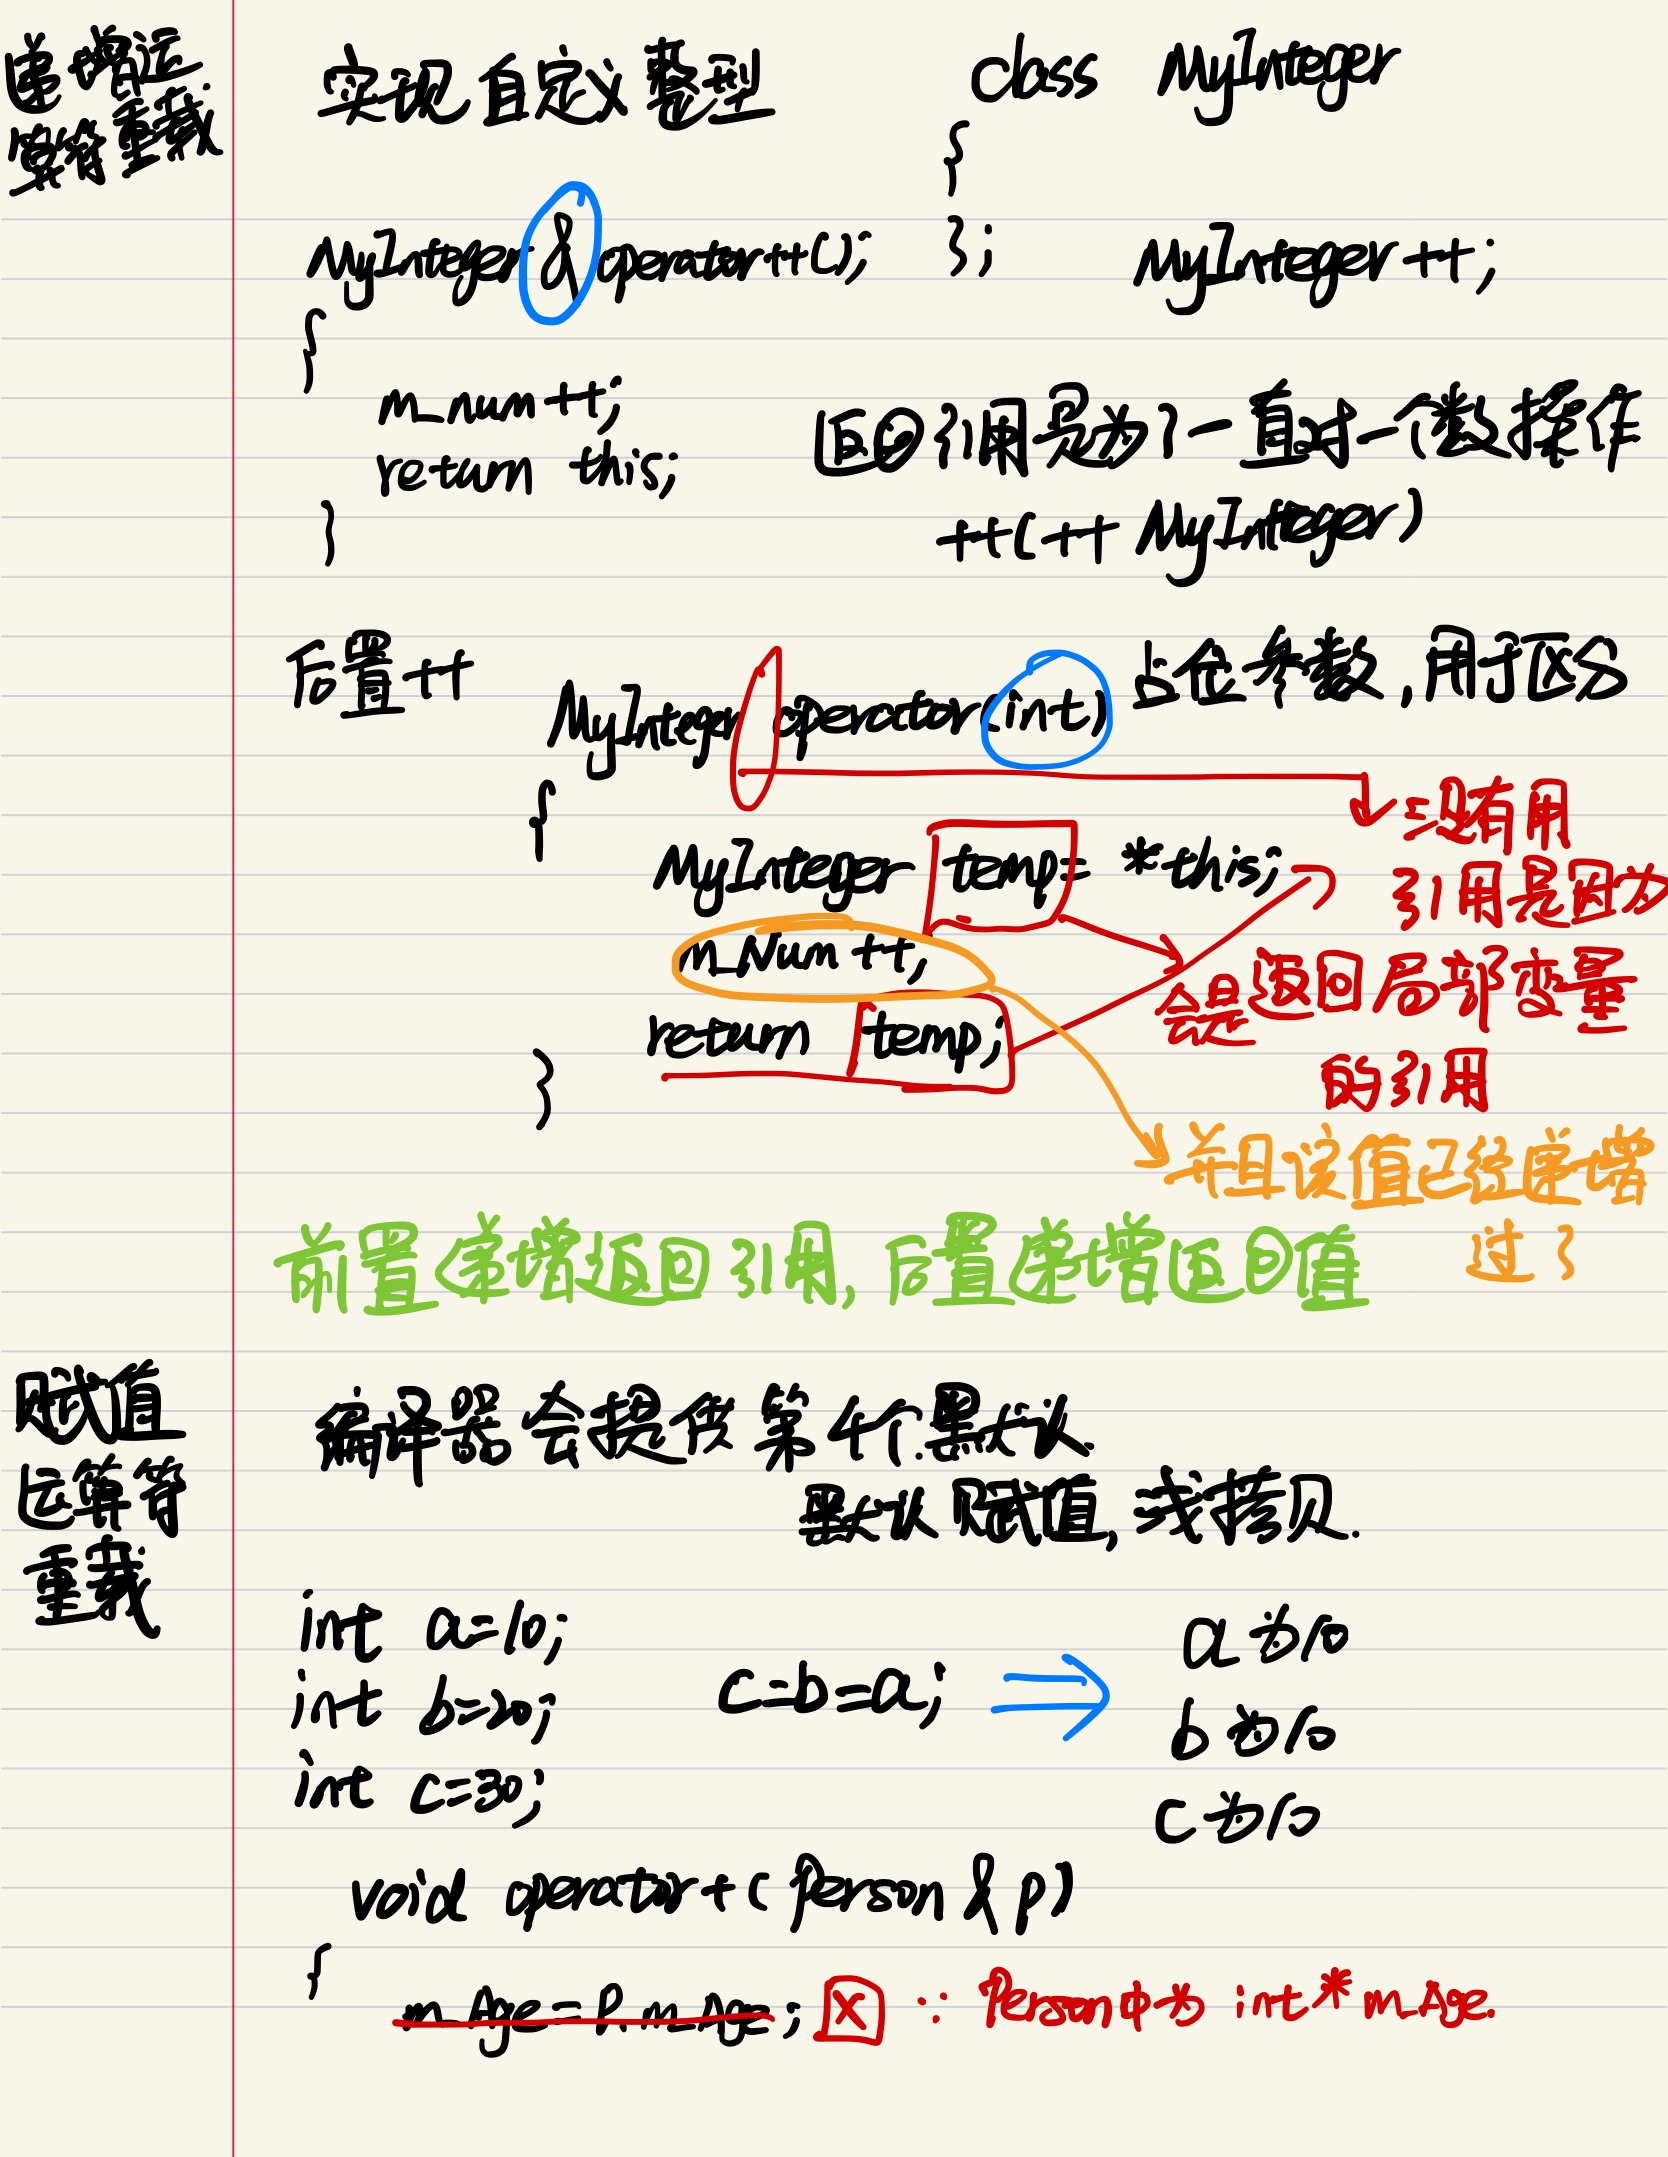 递增运
算符重载
实现自定义整型
class MyInteger
{
};
MyInteger++;
MyInteger & operator++();
{
m_num++;
return this;
}
返回引用是为了一直对一个数操作
++(++MyInteger)
后置++
MyInteger operator(int)
占位参数,用于区分
{
MyInteger temp = *this;
m_Num++;
return temp;
}
∵没有用
引用是因为
会是返回局部变量
的引用
并且该值已经递增
过了
前置递增返回引用,后置递增返回值
赋值
运算符
重载
编译器会提供第4个默认
默认赋值,浅拷贝.
int a=10;
int b=20;
int c=30;
c=b=a;
⇒
a为10
b为10
c为10
void operator+(Person & p)
{
m_Age=P.m_Age;
X
∵ Person中为 int* m_Age.